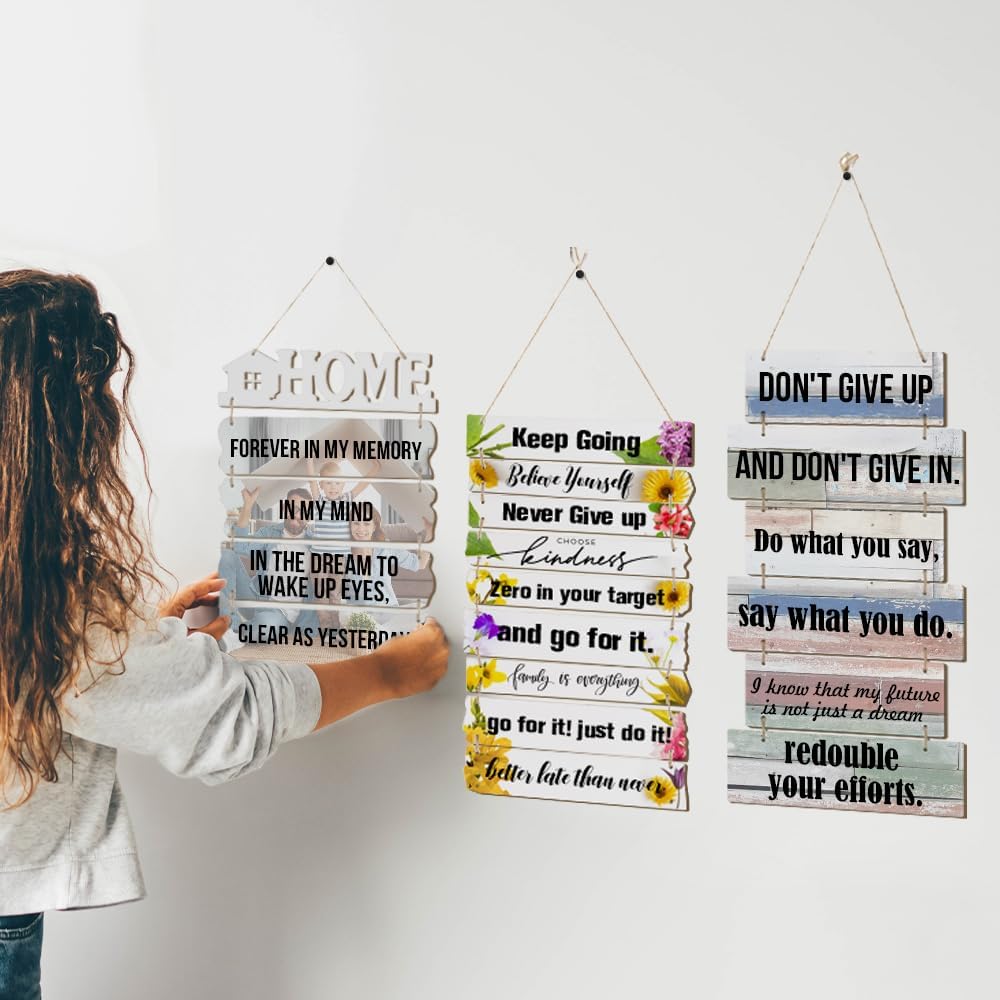 HOME
FOREVER IN MY MEMORY
IN MY MIND
IN THE DREAM TO
WAKE UP EYES,
CLEAR AS YESTERDAY
Keep Going
Believe Yourself
Never Give up
CHOOSE
kindness
Zero in your target
and go for it.
family is everything
go for it! just do it!
better late than never
DON'T GIVE UP
AND DON'T GIVE IN.
Do what you say,
say what you do.
I know that my future
is not just a dream
redouble
your efforts.